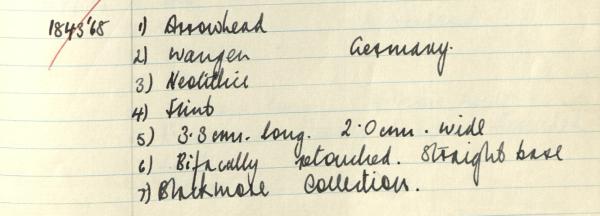 1843'68 1) Arrowhead
2) Wangen Germany.
3) Neolithic
4) Flint
5) 3.3 cms. long. 2.0 cms. wide
6) Bifacially retouched. Straight base
7) Blackmore Collection.